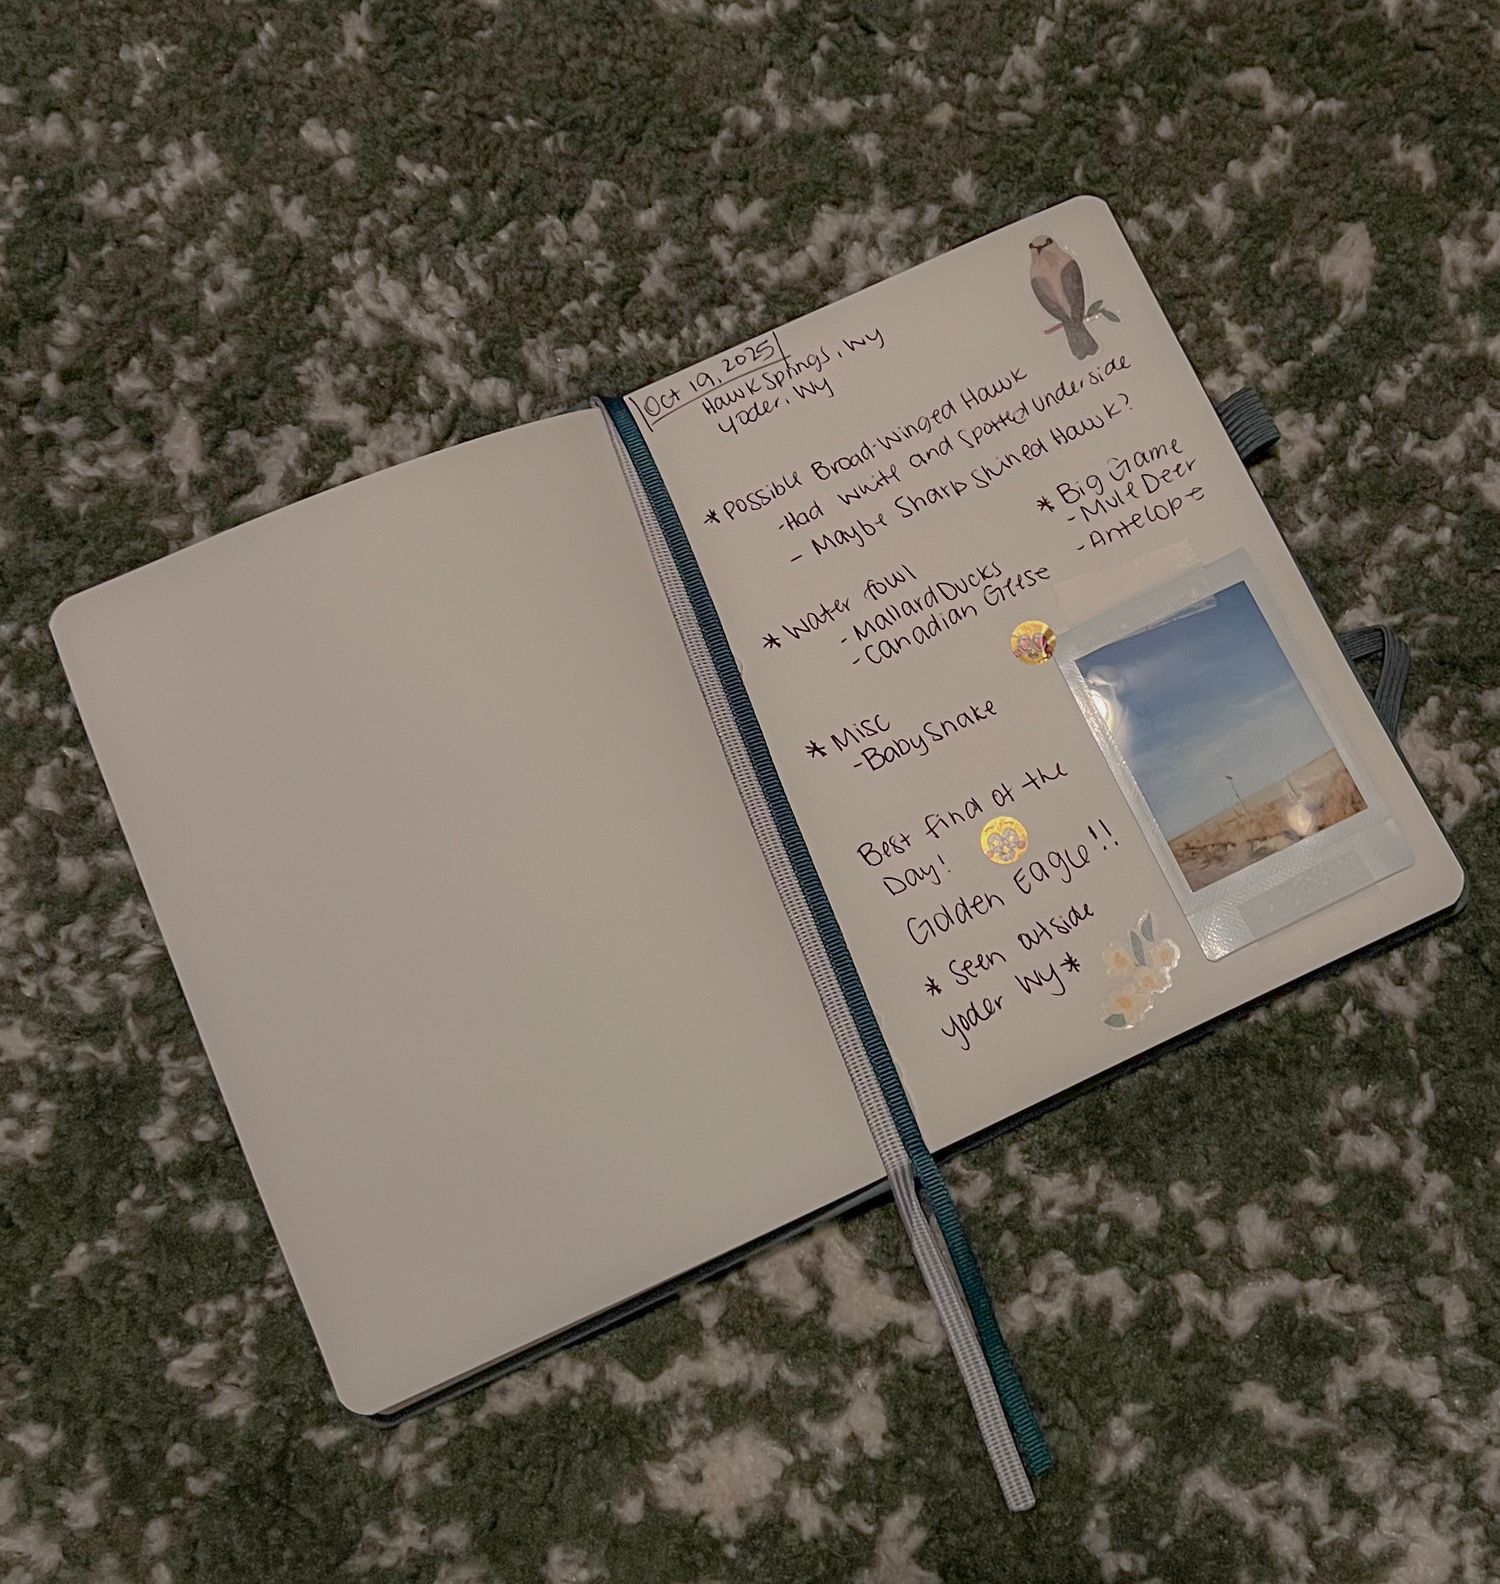 Oct 19, 2025
Hawk Springs, Wy
Yoder, Wy
* Possible Broad-Winged Hawk
-Had white and spotted underside
- Maybe Sharp shined Hawk?
* Big Game
- Mule Deer
- Antelope
* Water fowl
- Mallard Ducks
- Canadian Geese
* Misc
- Baby Snake
Best find of the
Day!
Golden Eagle!!
* Seen outside
Yoder Wy *